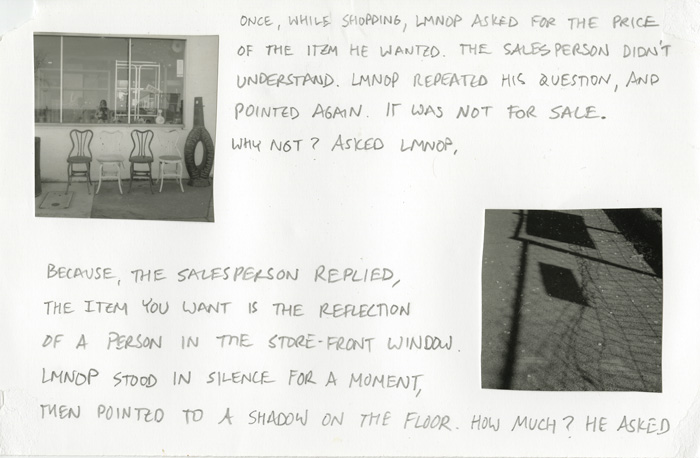 ONCE, WHILE SHOPPING, LMNOP ASKED FOR THE PRICE
OF THE ITEM HE WANTED. THE SALESPERSON DIDN'T
UNDERSTAND. LMNOP REPEATED HIS QUESTION, AND
POINTED AGAIN. IT WAS NOT FOR SALE.
WHY NOT? ASKED LMNOP.
BECAUSE, THE SALESPERSON REPLIED,
THE ITEM YOU WANT IS THE REFLECTION
OF A PERSON IN THE STORE-FRONT WINDOW.
LMNOP STOOD IN SILENCE FOR A MOMENT,
THEN POINTED TO A SHADOW ON THE FLOOR. HOW MUCH? HE ASKED